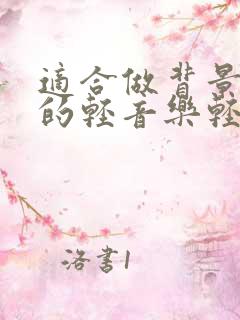 適合做背景
的輕音樂輕
洛書1